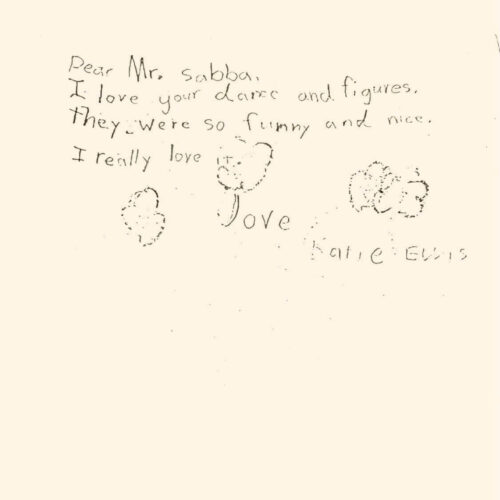 Dear Mr. Sabba,
I love your dance and figures.
They were so funny and nice.
I really love it.
Love
Katie Ellis